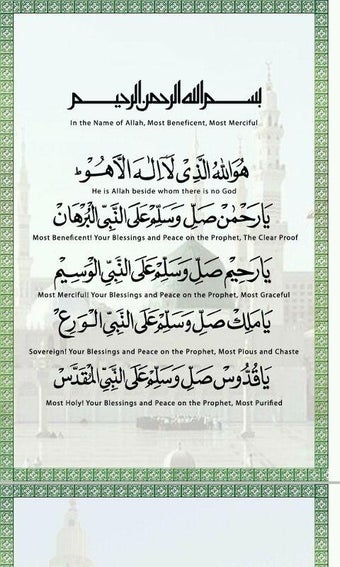 بسم الله الرحمن الرحيم
In the Name of Allah, Most Beneficent, Most Merciful
هُوَاللهُ الَّذِيْ لَآ اِلٰـهَ اِلَّاهُوْ ۚ
He is Allah beside whom there is no God
يَارَحْمٰنُ صَلِّ وَسَلِّمْ عَلَى النَّبِيِّ الْبُرْهَانْ
Most Beneficent! Your Blessings and Peace on the Prophet, The Clear Proof
يَارَحِيْمُ صَلِّ وَسَلِّمْ عَلَى النَّبِيِّ الْوَسِيْمْ
Most Merciful! Your Blessings and Peace on the Prophet, Most Graceful
يَامَلِكُ صَلِّ وَسَلِّمْ عَلَى النَّبِيِّ الْوَرِعْ
Sovereign! Your Blessings and Peace on the Prophet, Most Pious and Chaste
يَاقُدُّوْسُ صَلِّ وَسَلِّمْ عَلَى النَّبِيِّ الْمُقَدَّسْ
Most Holy! Your Blessings and Peace on the Prophet, Most Purified